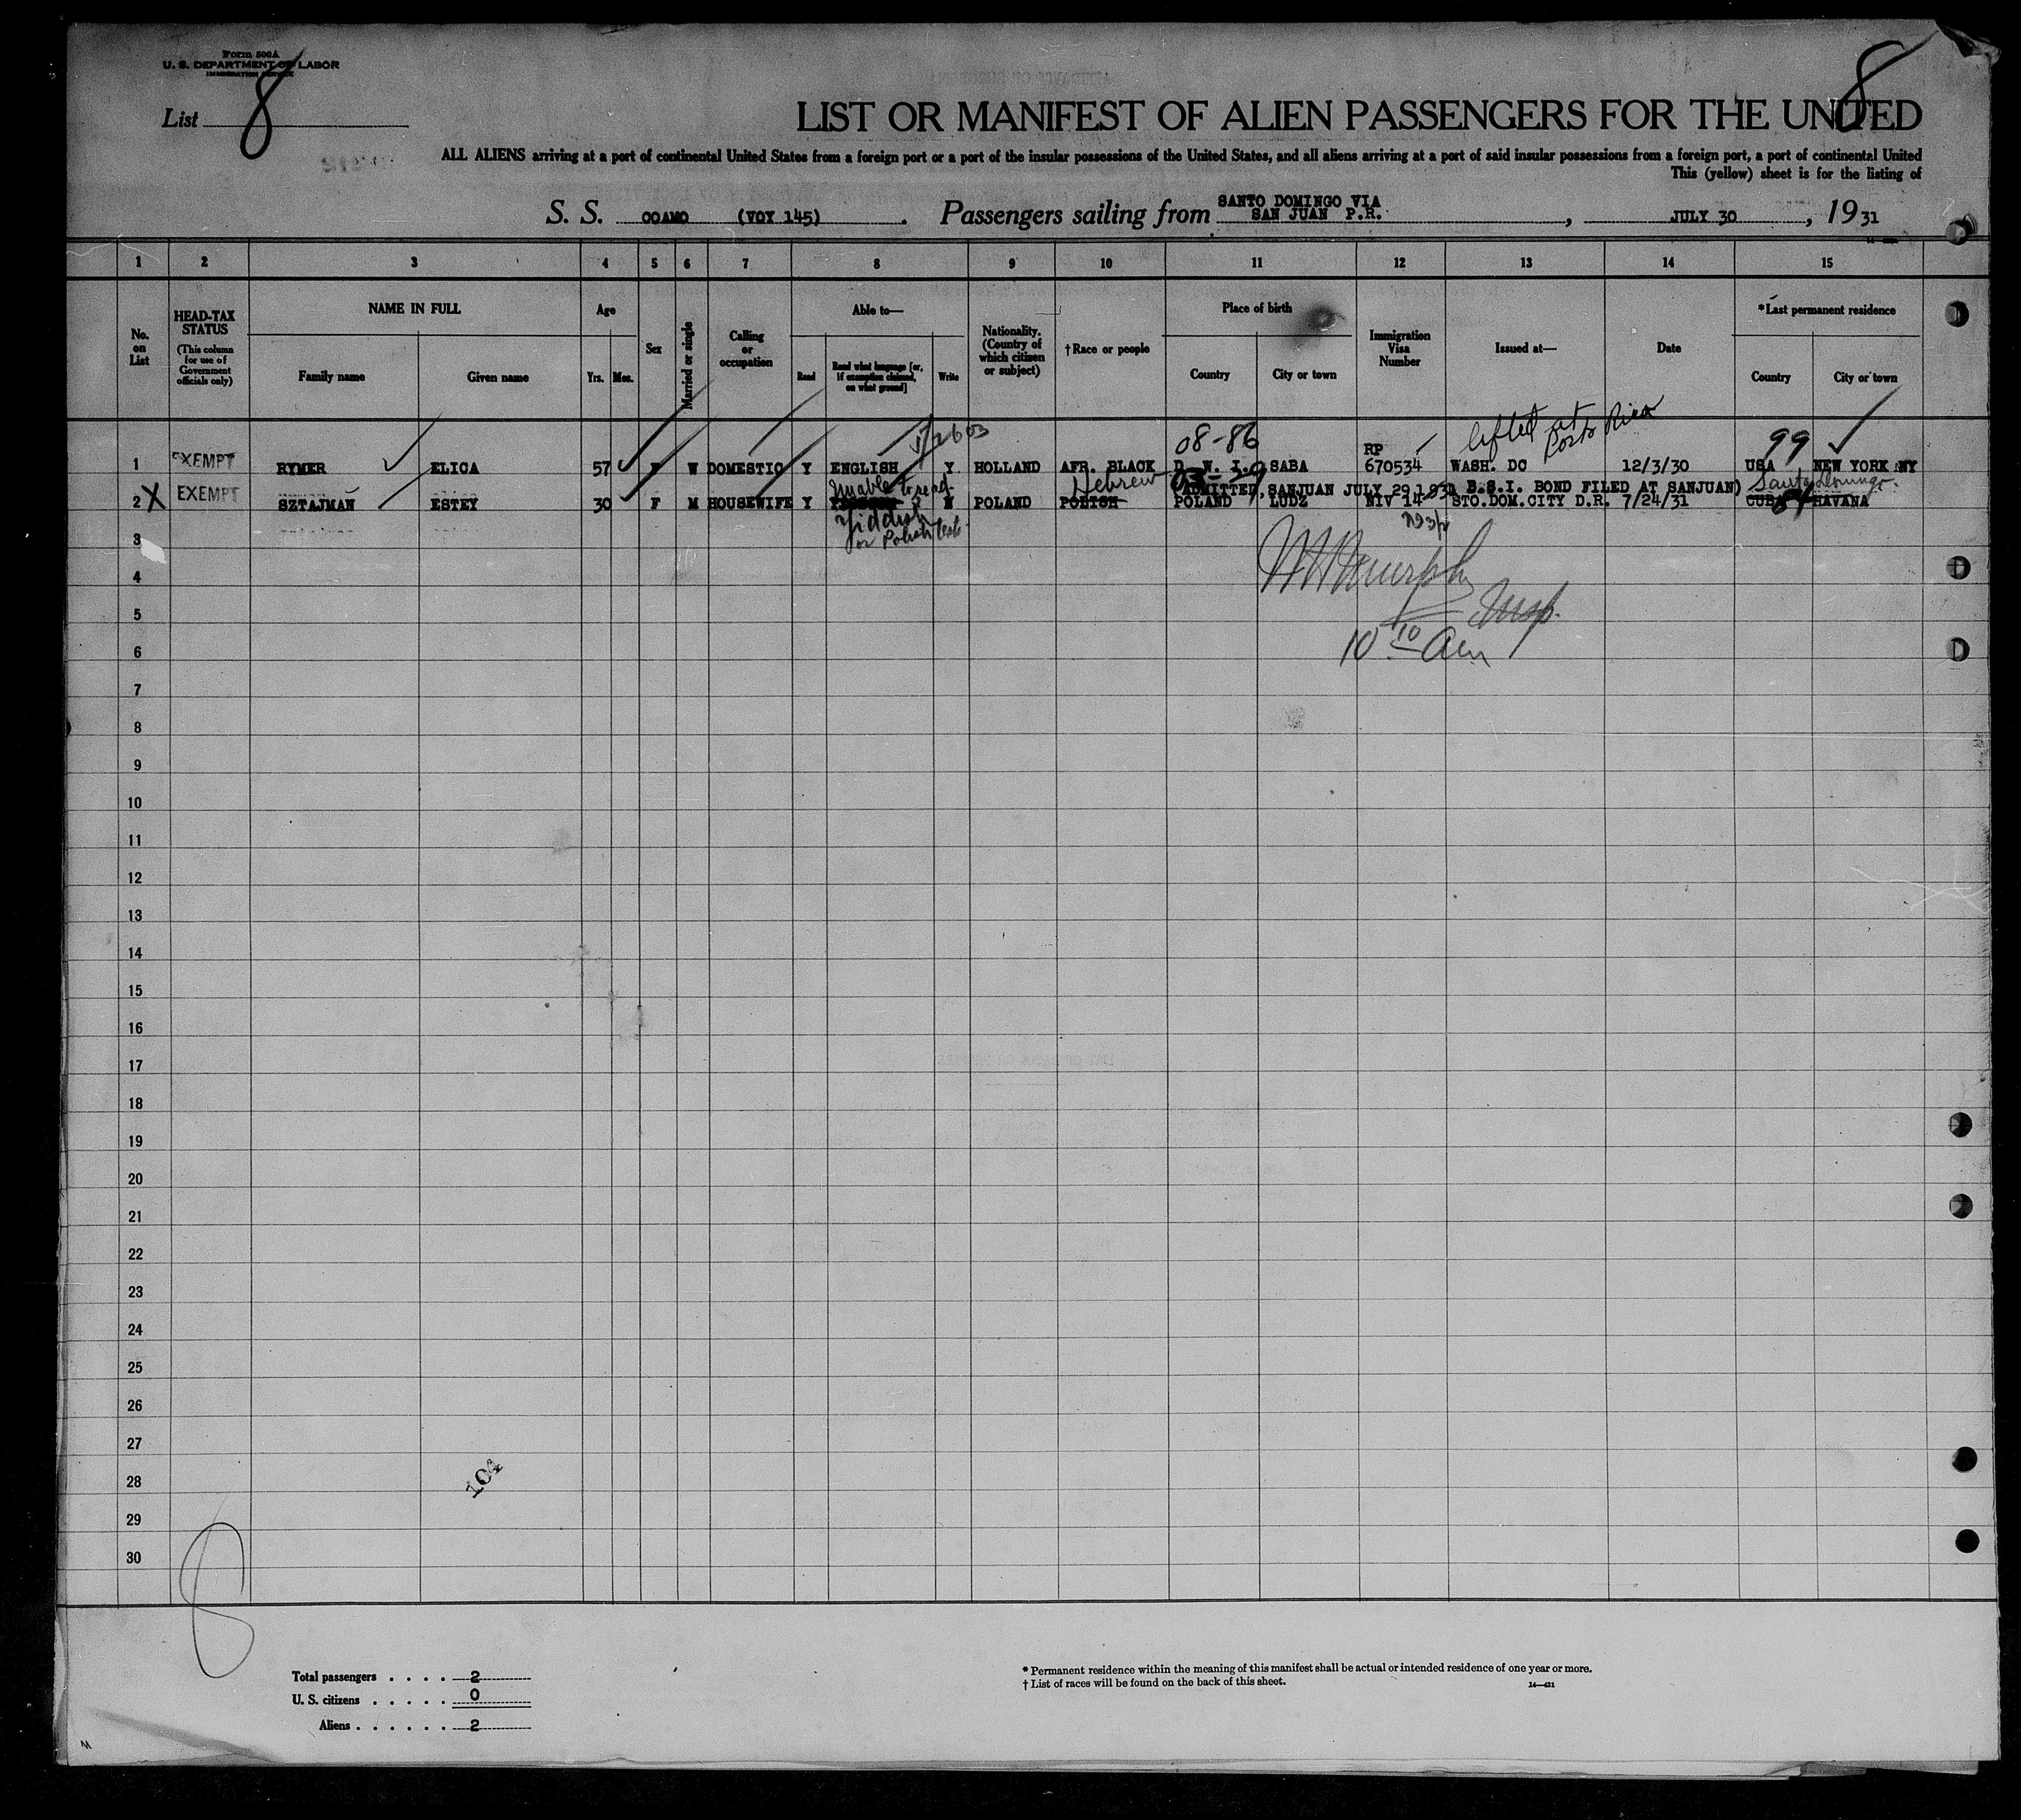 Form 500A
U. S. DEPARTMENT OF LABOR
IMMIGRATION SERVICE
List 8
8
LIST OR MANIFEST OF ALIEN PASSENGERS FOR THE UNITED
ALL ALIENS arriving at a port of continental United States from a foreign port or a port of the insular possessions of the United States, and all aliens arriving at a port of said insular possessions from a foreign port, a port of continental United
This (yellow) sheet is for the listing of
S. S. COAMO (VOY 145). Passengers sailing from SANTO DOMINGO VIA SAN JUAN P.R., JULY 30, 1931
1 2 3 4 5 6 7 8 9 10 11 12 13 14 15
No. on List
HEAD-TAX STATUS (This column for use of Government officials only)
NAME IN FULL
Family name Given name
Age
Yrs. Mos.
Sex
Married or single
Calling or occupation
Able to—
Read Read what language [or, if exemption claimed, on what ground] Write
Nationality. (Country of which citizen or subject)
†Race or people
Place of birth
Country City or town
Immigration Visa Number
Issued at—
Date
*Last permanent residence
Country City or town
lifted at Porto Rico
08-86
99
1 EXEMPT RYMER ELICA 57 F W DOMESTIC Y ENGLISH Y HOLLAND AFR. BLACK D. W. I. SABA RP 670534 WASH. DC 12/3/30 USA NEW YORK NY
Unable to read
Hebrew
(ADMITTED, SANJUAN JULY 29 1931 B.S.I. BOND FILED AT SANJUAN)
Santo Domingo
2 X EXEMPT SZTAJMAN ESTEY 30 F M HOUSEWIFE Y N POLAND POLISH POLAND LUDZ NIV 14 STO.DOM.CITY D.R. 7/24/31 CUBA HAVANA
Yiddish
or Polish
3
4
5
6
Murphy
Insp.
10 10 am
7
8
9
10
11
12
13
14
15
16
17
18
19
20
21
22
23
24
25
26
27
28
29
30
104
8
Total passengers . . . . 2
U. S. citizens . . . . . 0
Aliens . . . . . . 2
* Permanent residence within the meaning of this manifest shall be actual or intended residence of one year or more.
† List of races will be found on the back of this sheet.
14—431